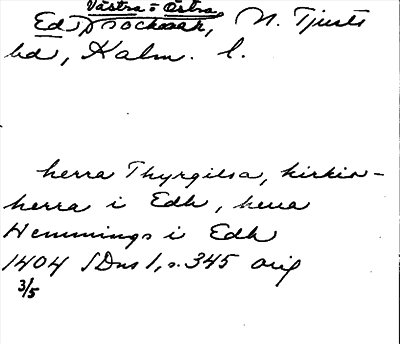 Västra = Östra
Ed socknar, N. Tjusts
hd, Kalm. l.
herra Thyrgilsa, kirkio-
herra i Edh, herra
Hemmings i Edh
1404 SDns 1, s. 345 orig
3/5